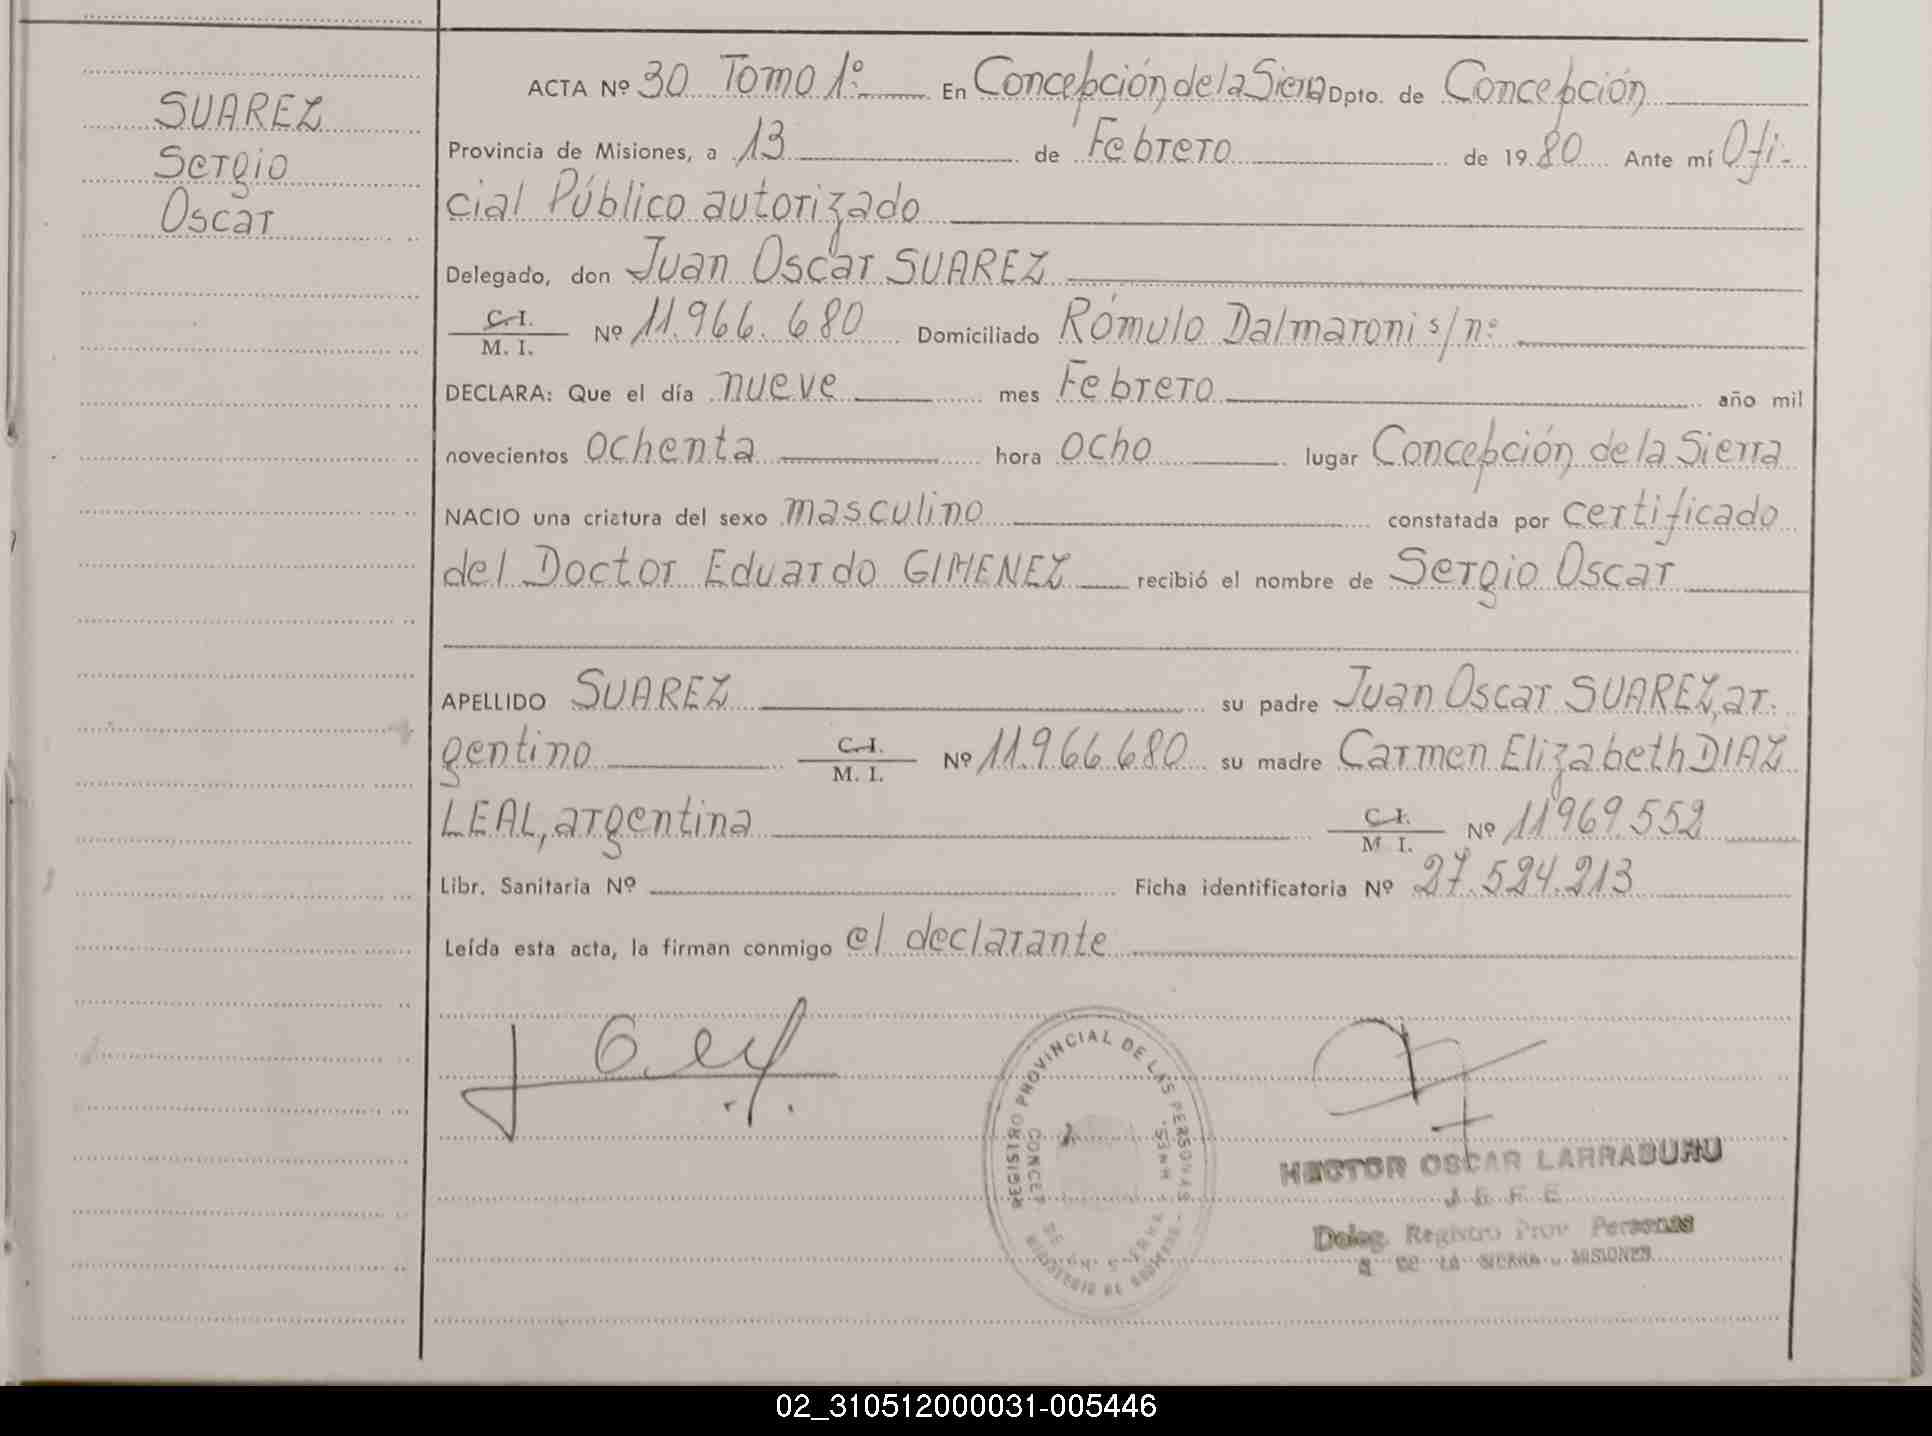 SUAREZ
Sergio
Oscar
ACTA Nº 30 Tomo 1º En Concepción de la Sierra Dpto. de Concepción
Provincia de Misiones, a 13 de Febrero de 1980 Ante mí Ofi-
cial Público autorizado
Delegado, don Juan Oscar SUAREZ
C.I. / M. I. Nº 11.966.680 Domiciliado Rómulo Dalmaroni s/nº
DECLARA: Que el día nueve mes Febrero año mil
novecientos ochenta hora ocho lugar Concepción de la Sierra
NACIO una criatura del sexo masculino constatada por certificado
del Doctor Eduardo GIMENEZ recibió el nombre de Sergio Oscar
APELLIDO SUAREZ su padre Juan Oscar SUAREZ, ar-
gentino C.I. / M. I. Nº 11.966.680 su madre Carmen Elizabeth DIAZ
LEAL, argentina C.I. / M I. Nº 11969.552
Libr. Sanitaria Nº Ficha identificatoria Nº 27.524.213
Leída esta acta, la firman conmigo el declarante
REGISTRO PROVINCIAL DE LAS PERSONAS
HECTOR OSCAR LARRABURU
JEFE
Deleg. Registro Prov. Personas
DE LA SIERRA - MISIONES
02_310512000031-005446